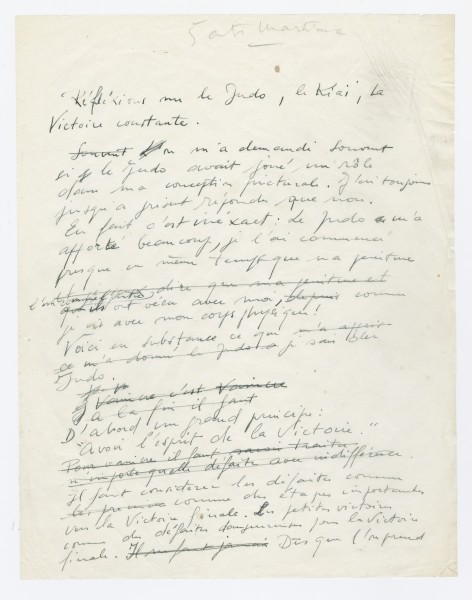 5 arts martiaux
"Réfléxions sur le Judo, le Kiai, la
Victoire constante.
Souvent on m'a demandé souvent
si le Judo avait joué un rôle
dans ma conception picturale. J'ai toujours
jusqu'à présent répondu que non.
En fait c'est inéxact: le Judo m'a
apporté beaucoup, je l'ai commencé
presque en même temps que ma peinture
dire que ma peinture et
ont vécu avec moi, depuis comme
je vis avec mon corps physique!
Voici en substance ce qui
ce m'a donné le Judo je sais
Judo.
Vaincre c'est Vaincre
à la fin il faut
D'abord un grand principe:
"Avoir l'esprit de la Victoire."
Pour vaincre il faut savoir traiter
n'importe quelle défaite avec indifférence.
Il faut considérer les défaites comme
comme des étapes importantes
vers la Victoire finale. Les petites victoires
comme des défaites dangereuses pour la Victoire
finale. Il ne faut jamais Dès que l'on prend